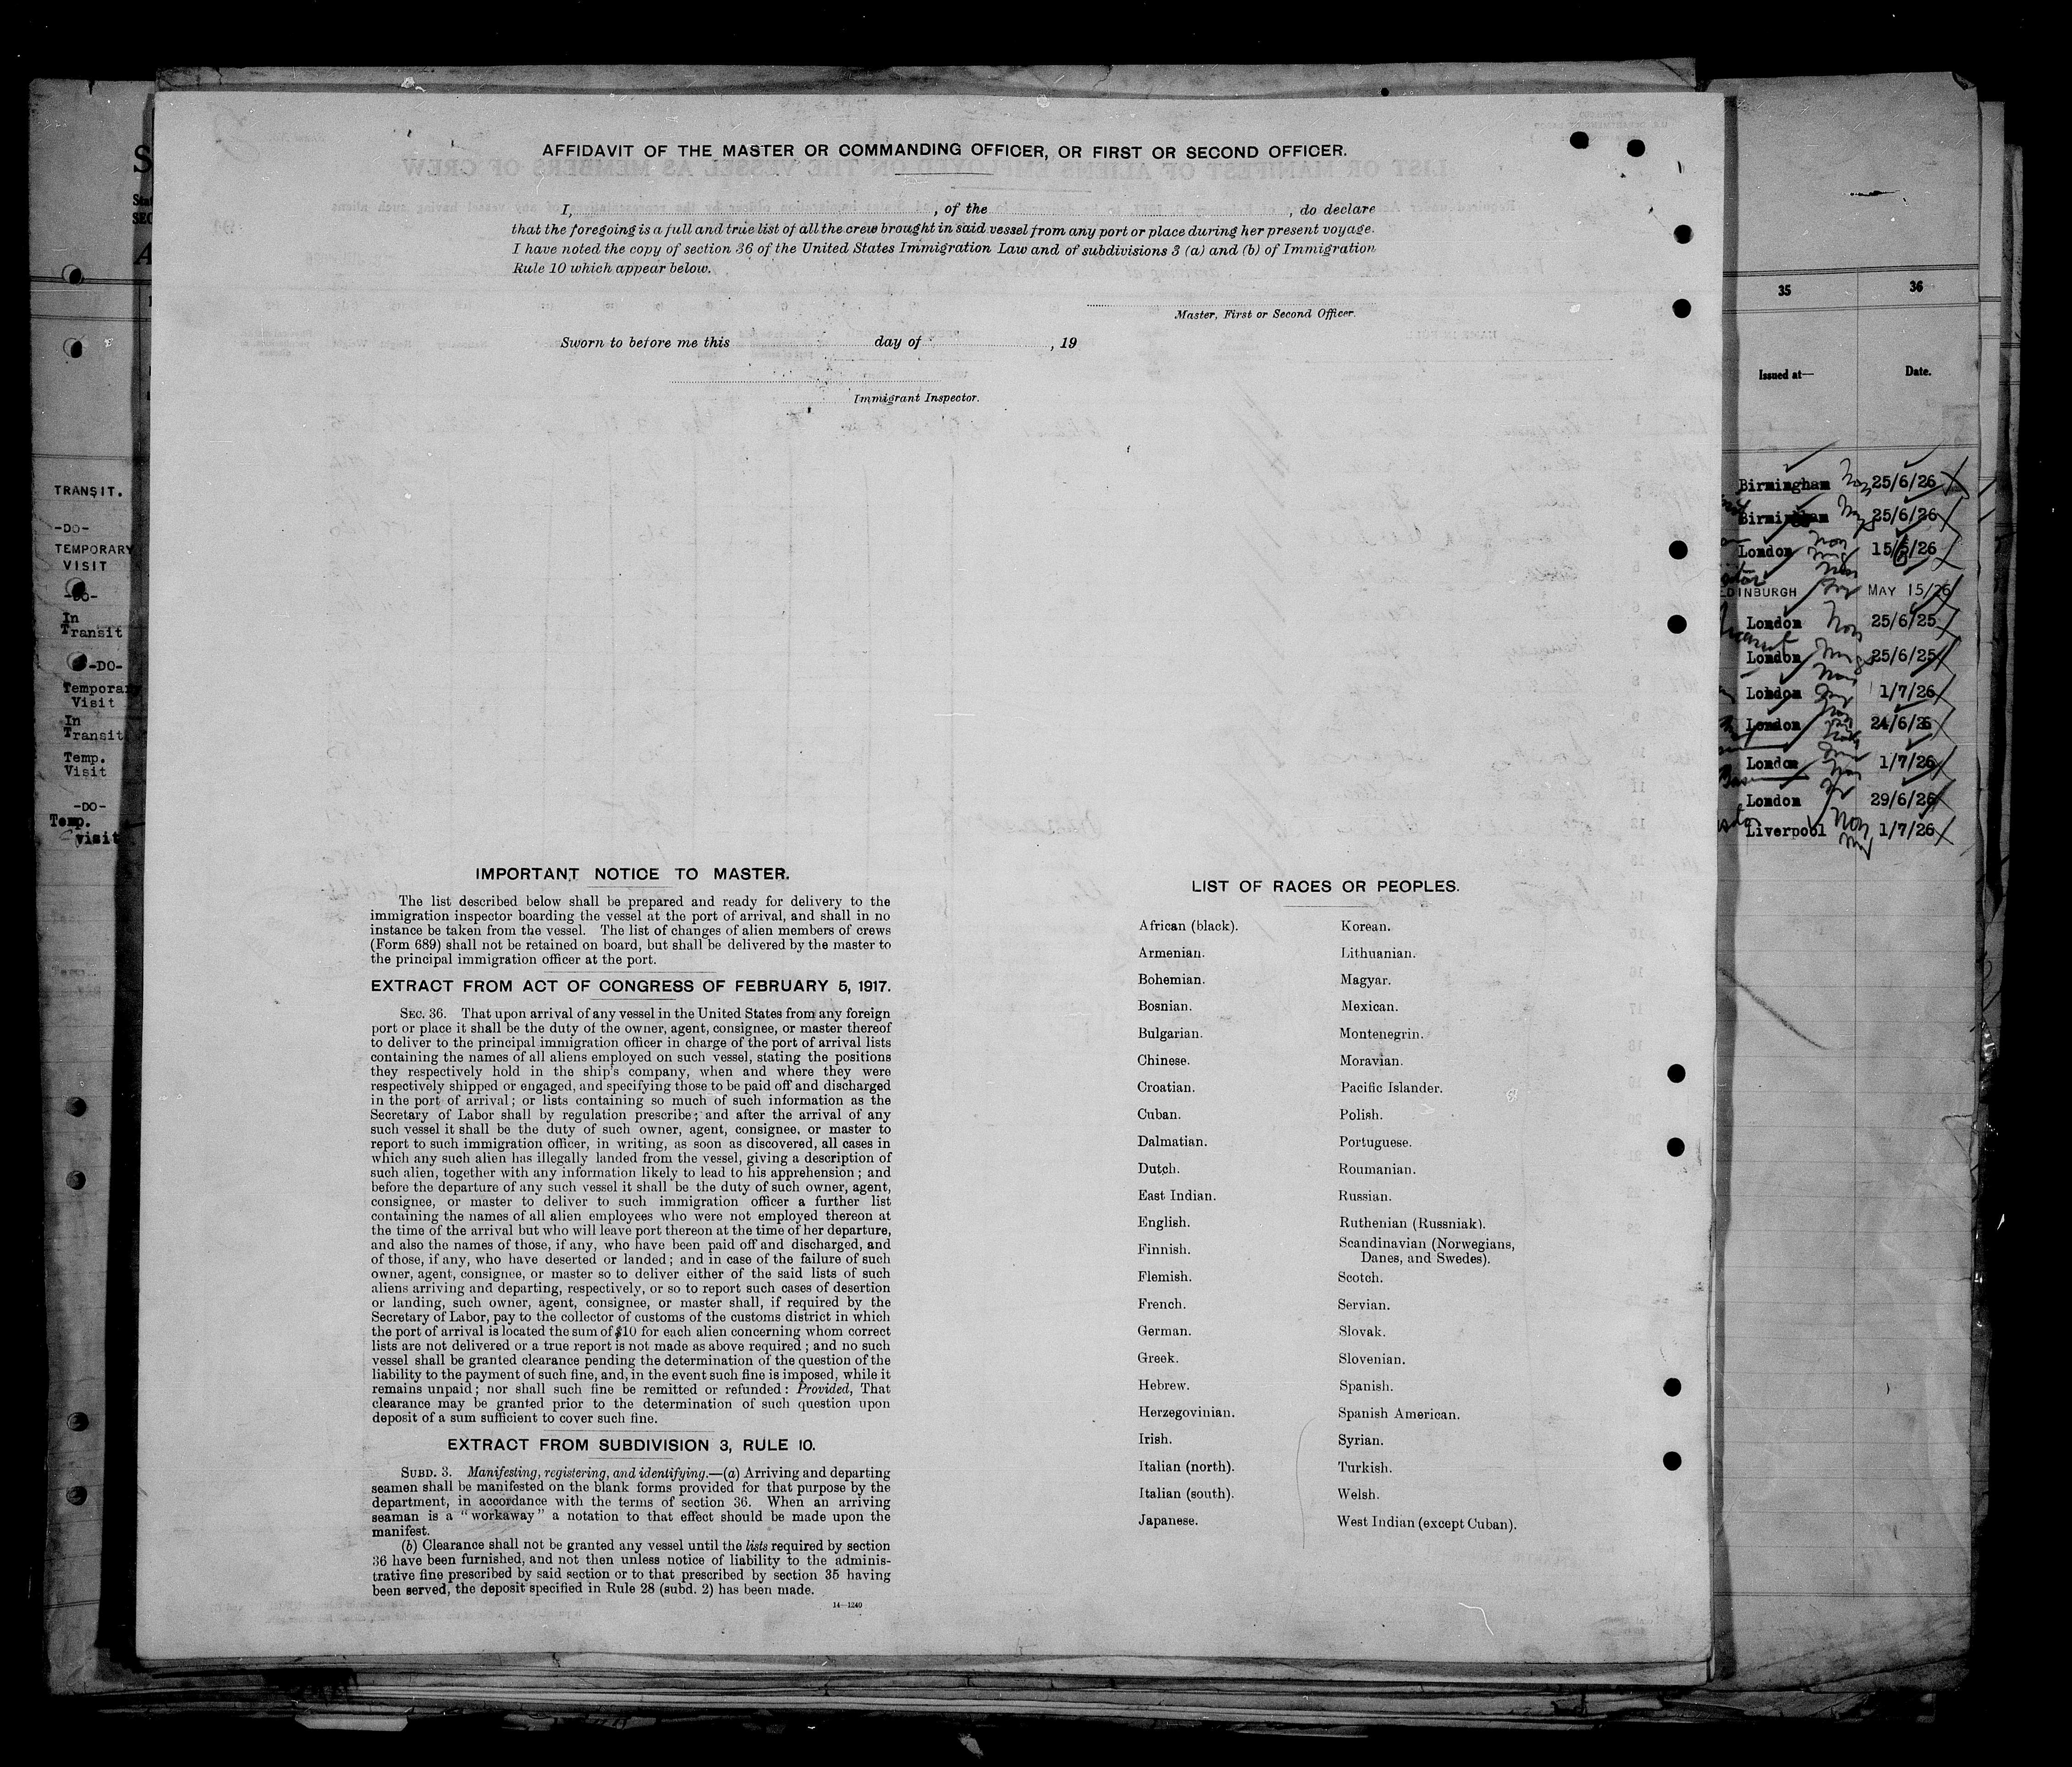 AFFIDAVIT OF THE MASTER OR COMMANDING OFFICER, OR FIRST OR SECOND OFFICER.
I, , of the , do declare
that the foregoing is a full and true list of all the crew brought in said vessel from any port or place during her present voyage.
I have noted the copy of section 36 of the United States Immigration Law and of subdivisions 3 (a) and (b) of Immigration
Rule 10 which appear below.
Master, First or Second Officer.
Sworn to before me this day of , 19
Immigrant Inspector.
IMPORTANT NOTICE TO MASTER.
The list described below shall be prepared and ready for delivery to the
immigration inspector boarding the vessel at the port of arrival, and shall in no
instance be taken from the vessel. The list of changes of alien members of crews
(Form 689) shall not be retained on board, but shall be delivered by the master to
the principal immigration officer at the port.
EXTRACT FROM ACT OF CONGRESS OF FEBRUARY 5, 1917.
SEC. 36. That upon arrival of any vessel in the United States from any foreign
port or place it shall be the duty of the owner, agent, consignee, or master thereof
to deliver to the principal immigration officer in charge of the port of arrival lists
containing the names of all aliens employed on such vessel, stating the positions
they respectively hold in the ship's company, when and where they were
respectively shipped or engaged, and specifying those to be paid off and discharged
in the port of arrival; or lists containing so much of such information as the
Secretary of Labor shall by regulation prescribe; and after the arrival of any
such vessel it shall be the duty of such owner, agent, consignee, or master to
report to such immigration officer, in writing, as soon as discovered, all cases in
which any such alien has illegally landed from the vessel, giving a description of
such alien, together with any information likely to lead to his apprehension; and
before the departure of any such vessel it shall be the duty of such owner, agent,
consignee, or master to deliver to such immigration officer a further list
containing the names of all alien employees who were not employed thereon at
the time of the arrival but who will leave port thereon at the time of her departure,
and also the names of those, if any, who have been paid off and discharged, and
of those, if any, who have deserted or landed; and in case of the failure of such
owner, agent, consignee, or master so to deliver either of the said lists of such
aliens arriving and departing, respectively, or so to report such cases of desertion
or landing, such owner, agent, consignee, or master shall, if required by the
Secretary of Labor, pay to the collector of customs of the customs district in which
the port of arrival is located the sum of $10 for each alien concerning whom correct
lists are not delivered or a true report is not made as above required; and no such
vessel shall be granted clearance pending the determination of the question of the
liability to the payment of such fine, and, in the event such fine is imposed, while it
remains unpaid; nor shall such fine be remitted or refunded: Provided, That
clearance may be granted prior to the determination of such question upon
deposit of a sum sufficient to cover such fine.
EXTRACT FROM SUBDIVISION 3, RULE 10.
SUBD. 3. Manifesting, registering, and identifying.—(a) Arriving and departing
seamen shall be manifested on the blank forms provided for that purpose by the
department, in accordance with the terms of section 36. When an arriving
seaman is a "workaway" a notation to that effect should be made upon the
manifest.
(b) Clearance shall not be granted any vessel until the lists required by section
36 have been furnished, and not then unless notice of liability to the adminis-
trative fine prescribed by said section or to that prescribed by section 35 having
been served, the deposit specified in Rule 28 (subd. 2) has been made.
14—1240
LIST OF RACES OR PEOPLES.
African (black).
Armenian.
Bohemian.
Bosnian.
Bulgarian.
Chinese.
Croatian.
Cuban.
Dalmatian.
Dutch.
East Indian.
English.
Finnish.
Flemish.
French.
German.
Greek.
Hebrew.
Herzegovinian.
Irish.
Italian (north).
Italian (south).
Japanese.
Korean.
Lithuanian.
Magyar.
Mexican.
Montenegrin.
Moravian.
Pacific Islander.
Polish.
Portuguese.
Roumanian.
Russian.
Ruthenian (Russniak).
Scandinavian (Norwegians,
Danes, and Swedes).
Scotch.
Servian.
Slovak.
Slovenian.
Spanish.
Spanish American.
Syrian.
Turkish.
Welsh.
West Indian (except Cuban).
TRANSIT.
-DO-
TEMPORARY
VISIT
-DO-
In
Transit
-DO-
Temporary
Visit
In
Transit
Temp.
Visit
-DO-
Temp.
visit
35 36
Issued at— Date.
Birmingham 25/6/26
Birmingham 25/6/26
London 15/6/26
EDINBURGH MAY 15/26
London 25/6/25
London 25/6/25
London 1/7/26
London 24/6/26
London 1/7/26
London 29/6/26
Liverpool 1/7/26